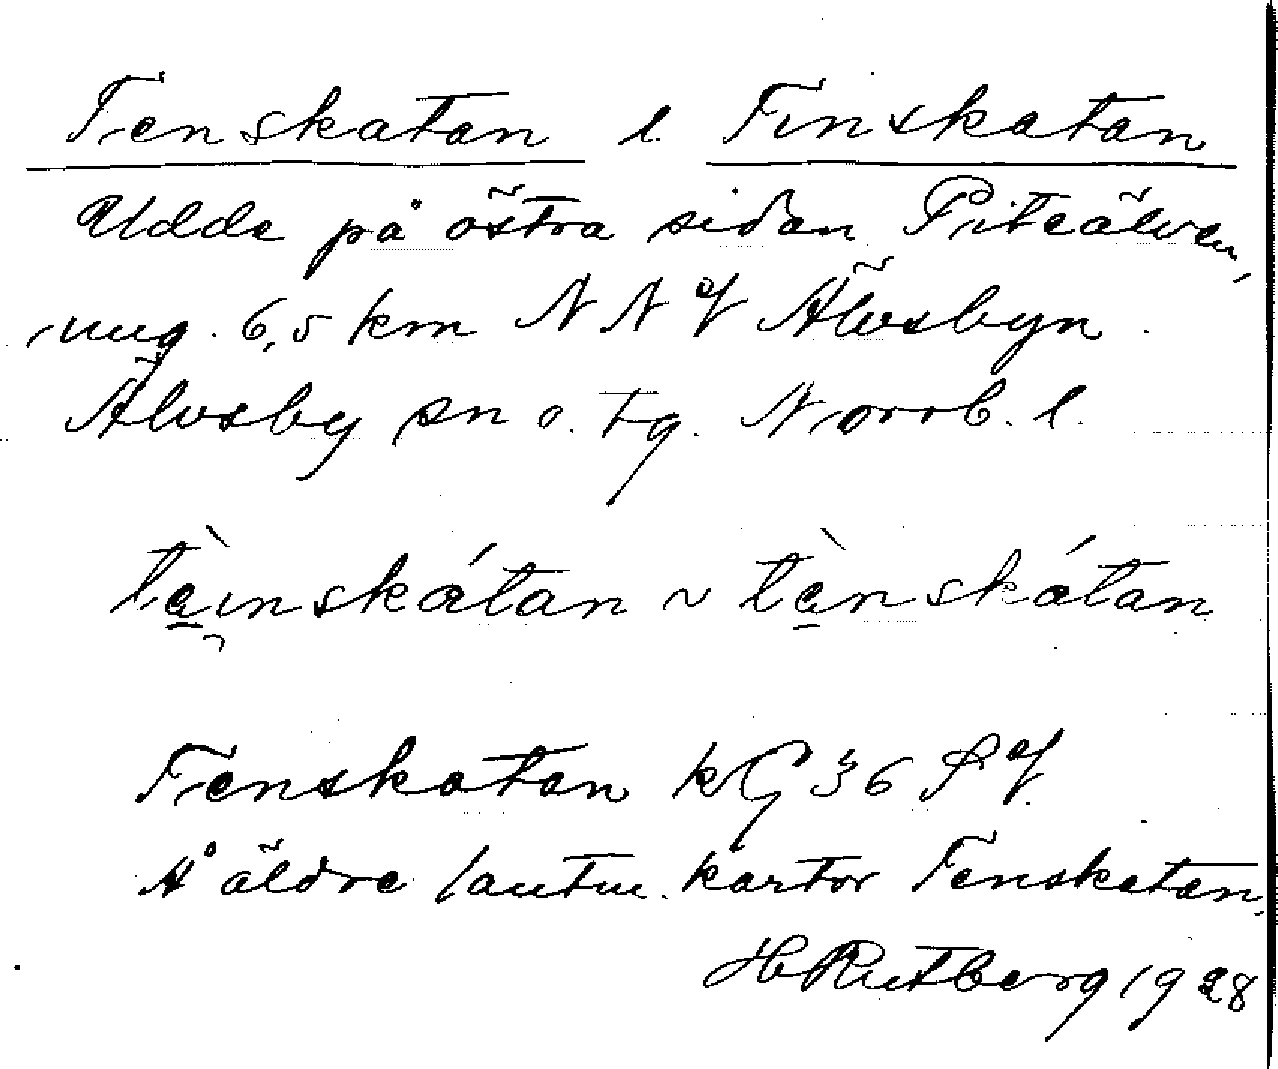 Tenskatan l. Tinskatan
Udde på östra sidan Piteälven,
ung. 6,5 km N N V Älvsbyn.
Älvsby sn o. tg. Norrb. l.
tèınskátan ~ tènskátan
Tenskatan kG 36 S V.
Å äldre lantm. kartor Tenskatan.
H Rutberg 1928